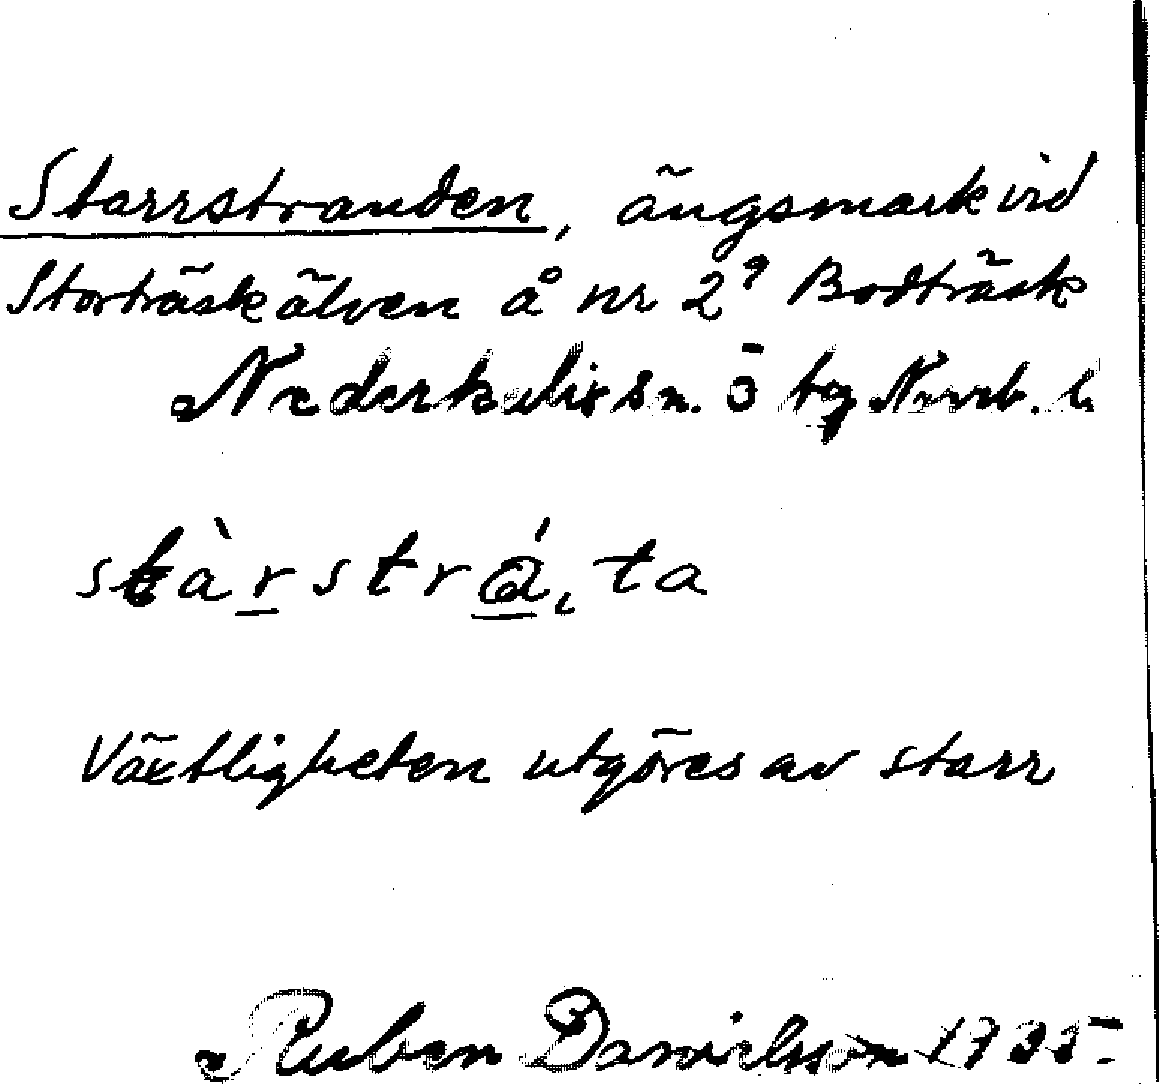 Starrstranden, ängsmark vid
Storträskälven å nr 2⁹ Bodträsk
Nederkalix sn. ö tg Norrb. l.
stàrstrá,ta
Växtligheten utgöres av starr
Ruben Danielsson 1935.